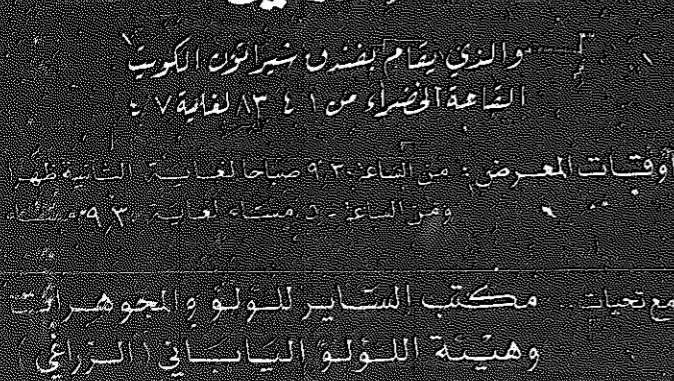 والذي يقام بفندق شيراتون الكويت
القاعة الخضراء من ١٣ لغاية ٧
أوقات المعرض: من الساعة ٩٫٣٠ صباحا لغاية الثانية ظهرا
ومن الساعة مساء لغاية ٩٫٣٠ مساء
مع تحيات.. مكتب الساير للؤلؤ والمجوهرات
وهيئة اللؤلؤ الياباني (الزراعي)